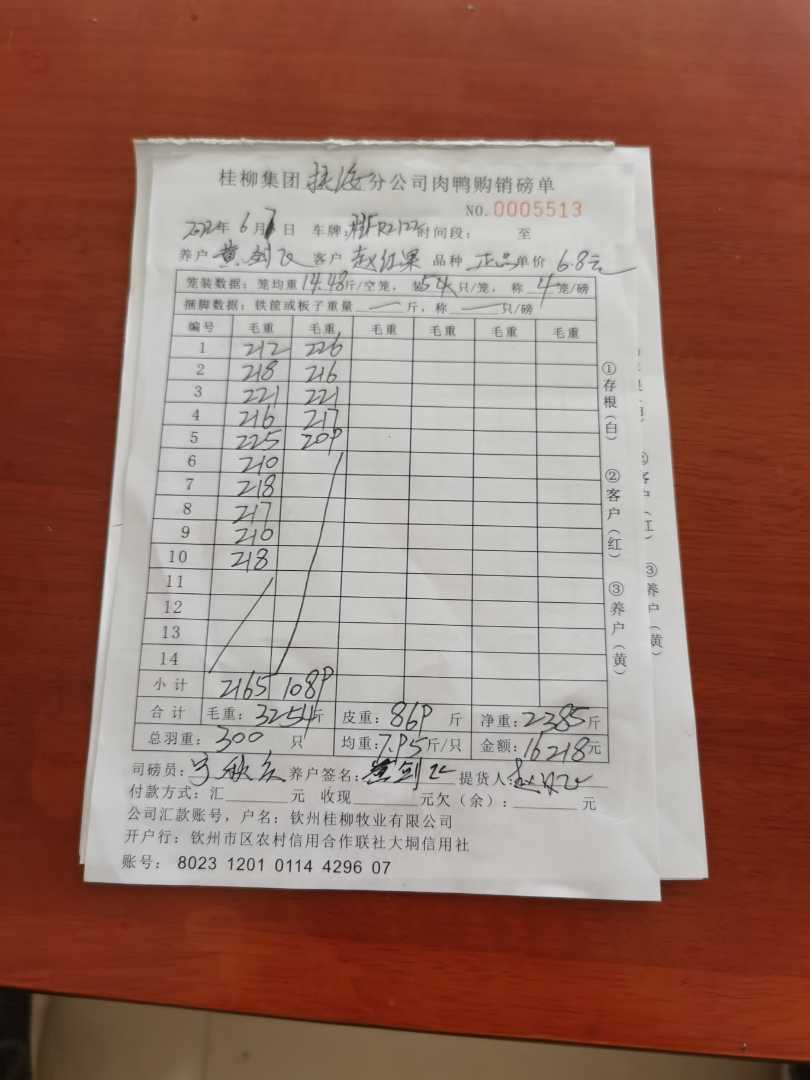 桂柳集团 扶海 分公司肉鸭购销磅单
NO.0005513
2022年 6月7日 车牌:桂FR2122 时间段: 至
养户 黄剑飞 客户 赵红果 品种 正品 单价 6.8元
笼装数据:笼均重14.48斤/空笼,装5只/笼,称4笼/磅
捆脚数据:铁筐或板子重量 — 斤,称 — 只/磅
编号 毛重 毛重 毛重 毛重 毛重 毛重
1 212 226
2 218 216
3 221 221
4 216 217
5 225 209
6 210
7 218
8 217
9 210
10 218
11
12
13
14
小计 2165 1089
合计 毛重:3254斤 皮重:869斤 净重:2385斤
总羽重:300只 均重:7.95斤/只 金额:16218元
司磅员: 养户签名:黄剑飞 提货人:
付款方式:汇 元 收现 元欠(余): 元
公司汇款账号,户名:钦州桂柳牧业有限公司
开户行:钦州市区农村信用合作联社大垌信用社
账号:8023 1201 0114 4296 07
①存根(白) ②客户(红) ③养户(黄)